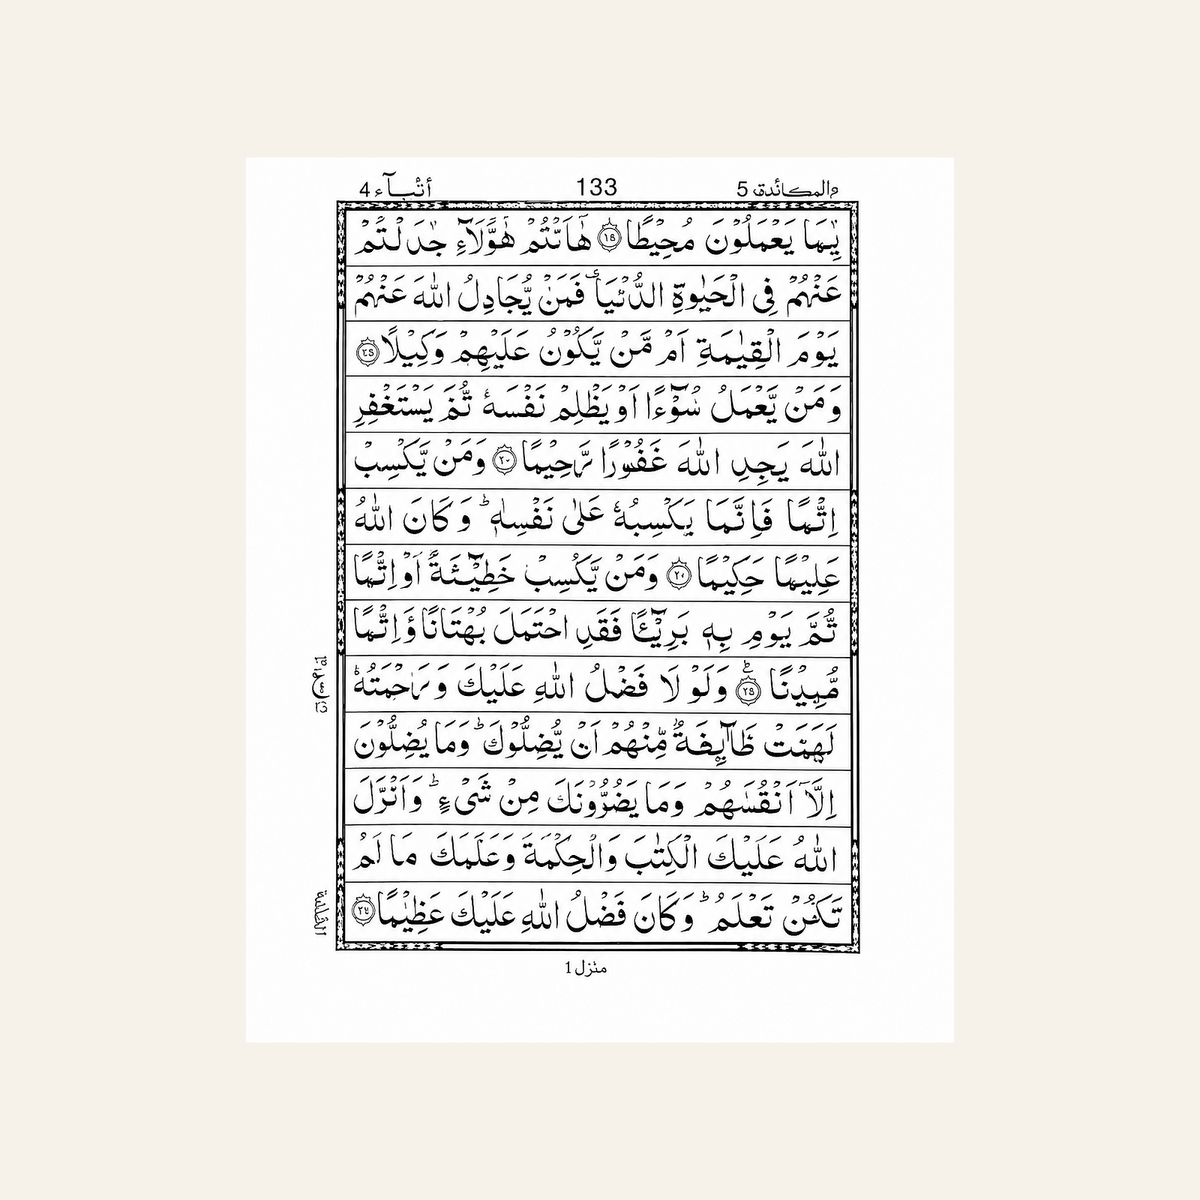 أنْبـآء 4 133 والمكائدة 5
بِمَا يَعْمَلُوْنَ مُحِيْطًا ۝ هٰٓاَنْتُمْ هٰٓؤُلَآءِ جٰدَلْتُمْ
عَنْهُمْ فِى الْحَيٰوةِ الدُّنْيَا فَمَنْ يُّجَادِلُ اللّٰهَ عَنْهُمْ
يَوْمَ الْقِيٰمَةِ اَمْ مَّنْ يَّكُوْنُ عَلَيْهِمْ وَكِيْلًا ۝
وَمَنْ يَّعْمَلْ سُوْٓءًا اَوْ يَظْلِمْ نَفْسَهٗ ثُمَّ يَسْتَغْفِرِ
اللّٰهَ يَجِدِ اللّٰهَ غَفُوْرًا رَّحِيْمًا ۝ وَمَنْ يَّكْسِبْ
اِثْمًا فَاِنَّمَا يَكْسِبُهٗ عَلٰى نَفْسِهٖ ؕ وَكَانَ اللّٰهُ
عَلِيْمًا حَكِيْمًا ۝ وَمَنْ يَّكْسِبْ خَطِيْٓئَةً اَوْ اِثْمًا
ثُمَّ يَوْمِ بِهٖ بَرِيْٓئًا فَقَدِ احْتَمَلَ بُهْتَانًا وَّاِثْمًا
مُّبِيْنًا ۝ وَلَوْ لَا فَضْلُ اللّٰهِ عَلَيْكَ وَرَحْمَتُهٗ
لَهَمَّتْ طَآئِفَةٌ مِّنْهُمْ اَنْ يُّضِلُّوْكَ ؕ وَمَا يُضِلُّوْنَ
اِلَّآ اَنْقُسَهُمْ وَمَا يَضُرُّوْنَكَ مِنْ شَىْءٍ ؕ وَاَنْزَلَ
اللّٰهُ عَلَيْكَ الْكِتٰبَ وَالْحِكْمَةَ وَعَلَّمَكَ مَا لَمْ
تَكُنْ تَعْلَمُ ؕ وَكَانَ فَضْلُ اللّٰهِ عَلَيْكَ عَظِيْمًا ۝
منزل 1